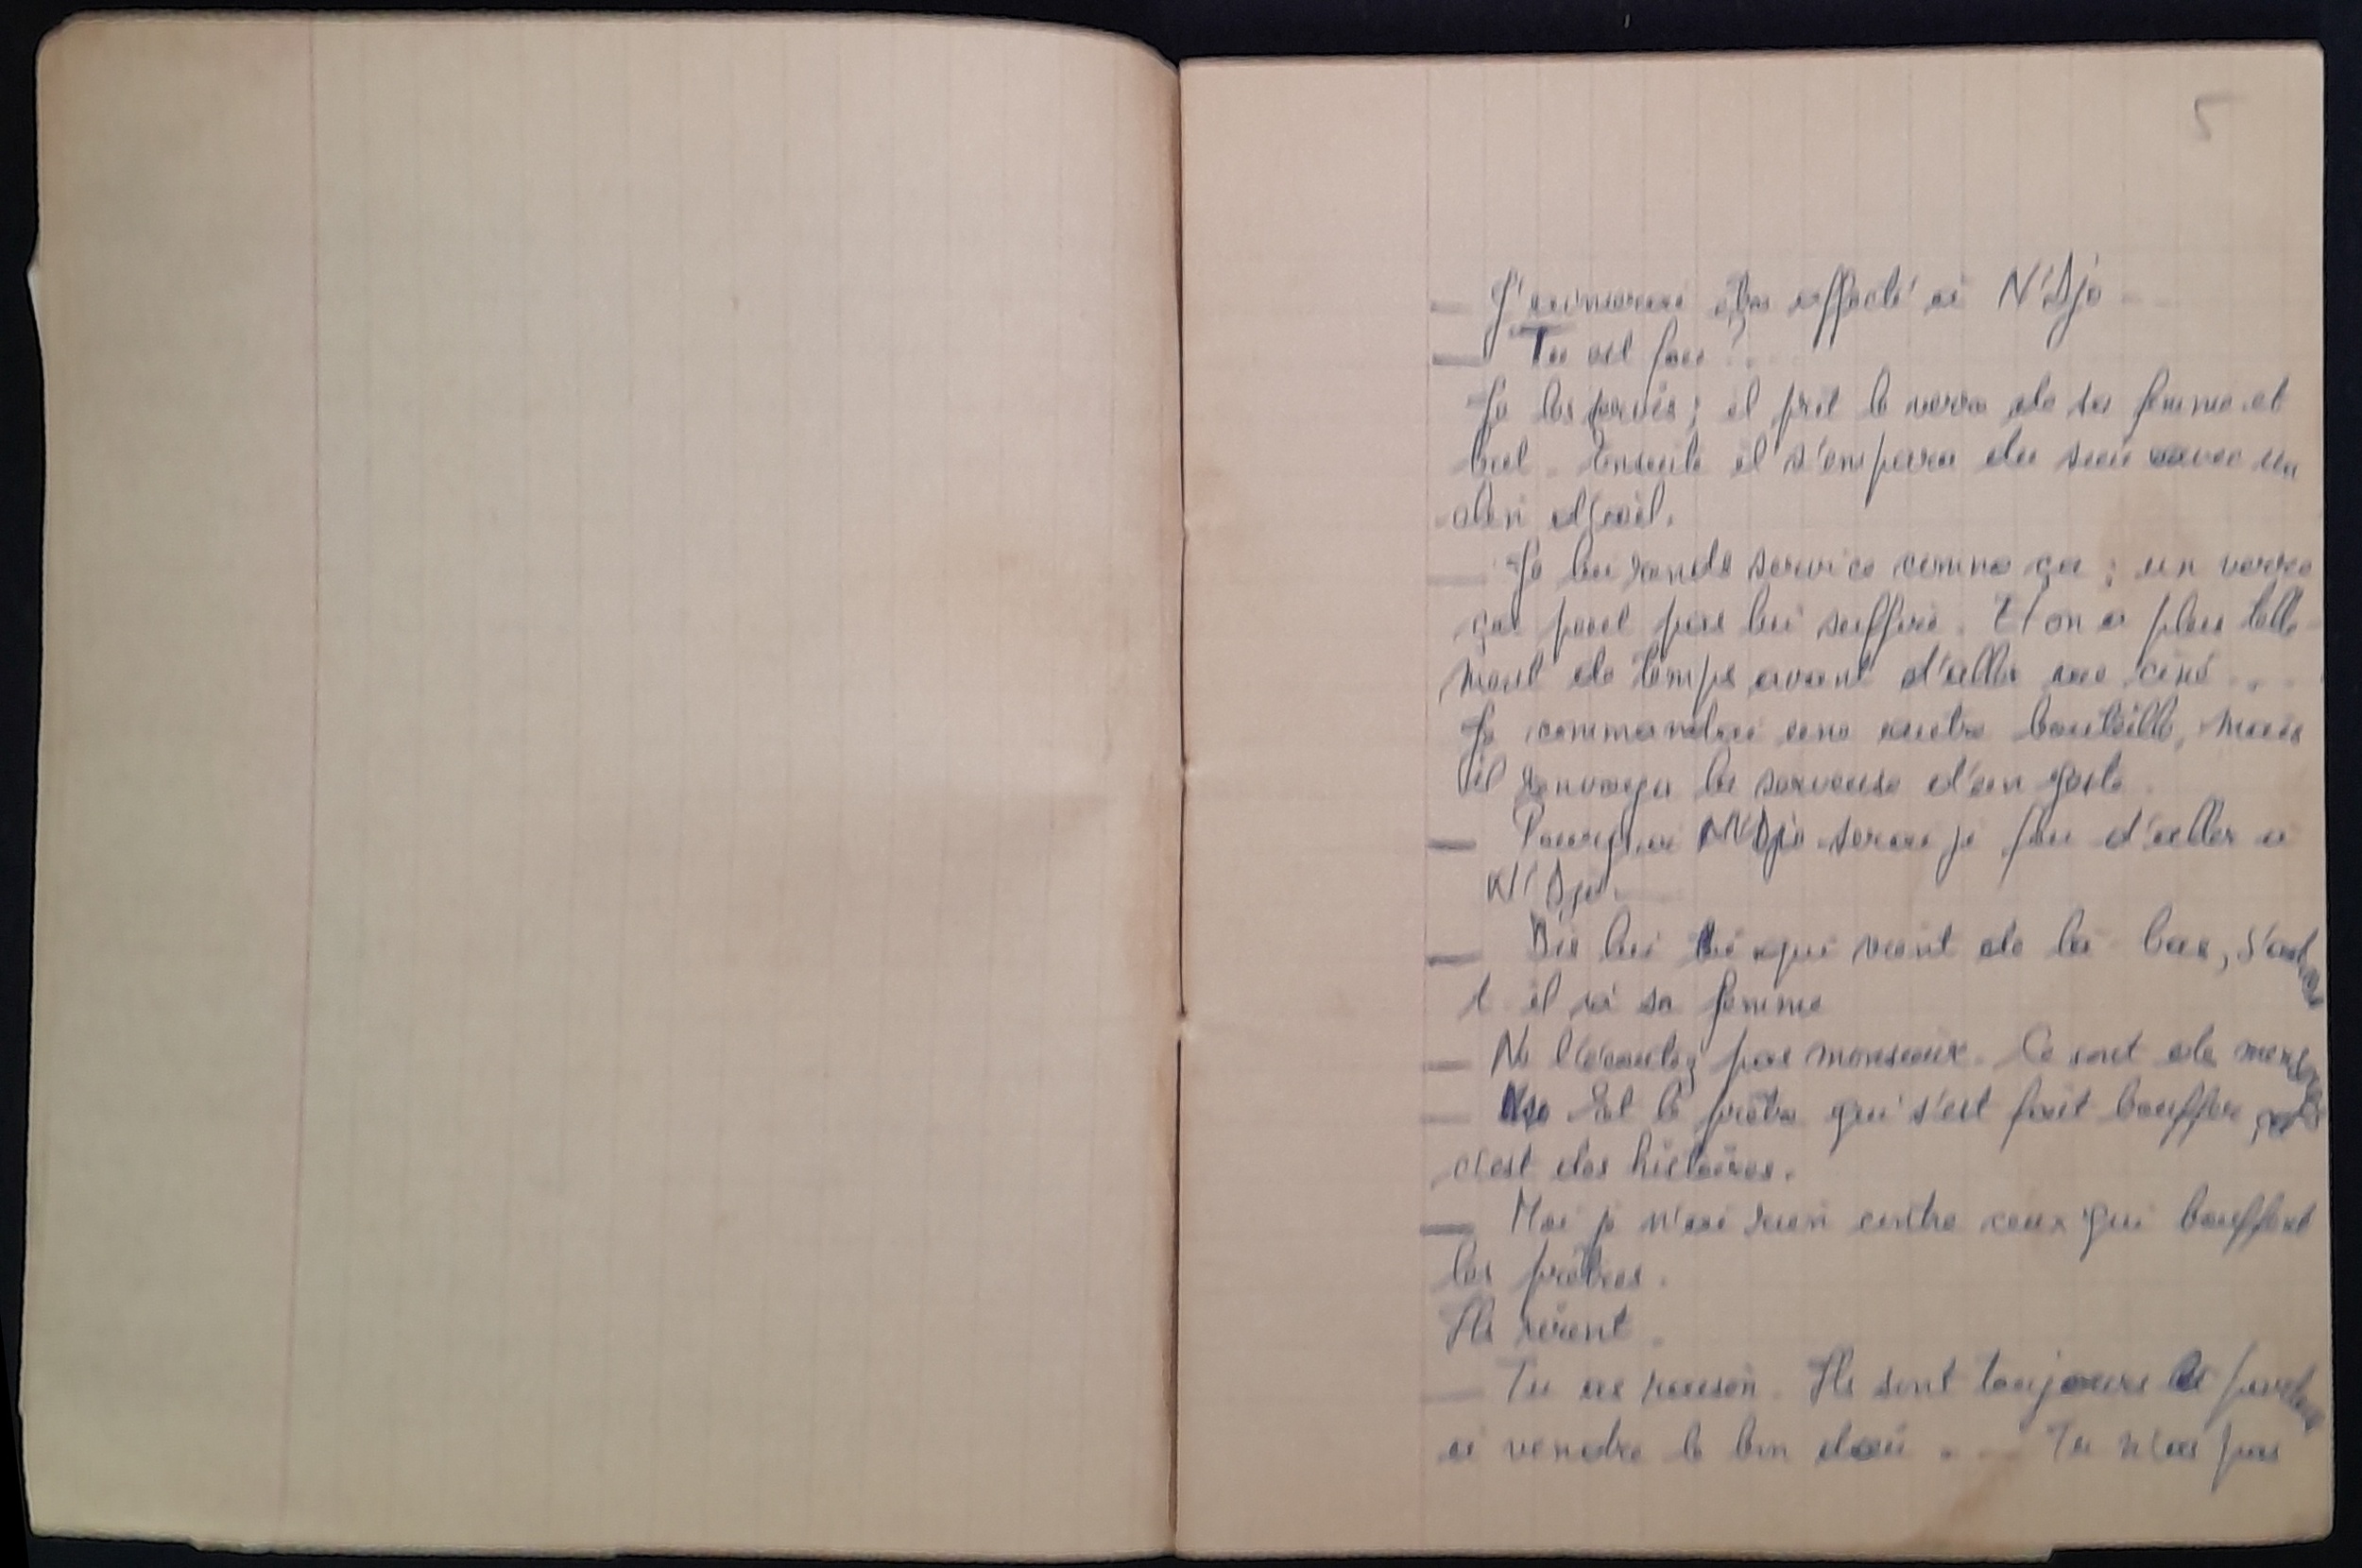 5
— J'aimerai être affecté à N'Djo
— Tu est fou ...
Je les servis ; il prit le verre de sa femme et
but. Ensuite il s'empara du sien avec un
clin d'œil.
— Je lui rends service comme ça ; un verre
ça peut pas lui suffire. Et on a plus telle-
ment de temps avant d'aller au ciné ...
Je commandai une autre bouteille, mais
il renvoya la serveuse d'un geste.
— Pourquoi N'Djo serai je fou d'aller a
N'Djo.
— Dis lui toi qui vient de la bas,
t il à sa femme
— Ne l'écoutez pas monsieur. Ce sont de
— Et le prêtre qui s'est fait bouffer, ça
c'est des histoires.
— Moi je n'ai rien contre ceux qui bouffent
les prêtres.
Ils rirent.
— Tu as raison. Ils sont toujours
à vendre le bon dieu ... Tu n'as pas